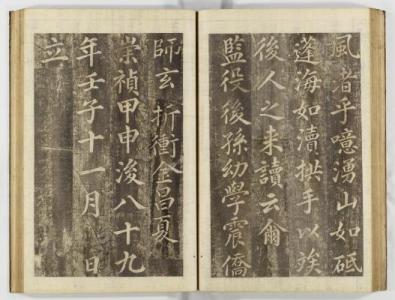 風者乎噫湧山如砥
蓬海如瀆拱手以竢
後人之来讀云爾
監役後孫幼學震僑
師玄 折衝金昌夏
崇禎甲申後八十九
年壬子十一月 日
立